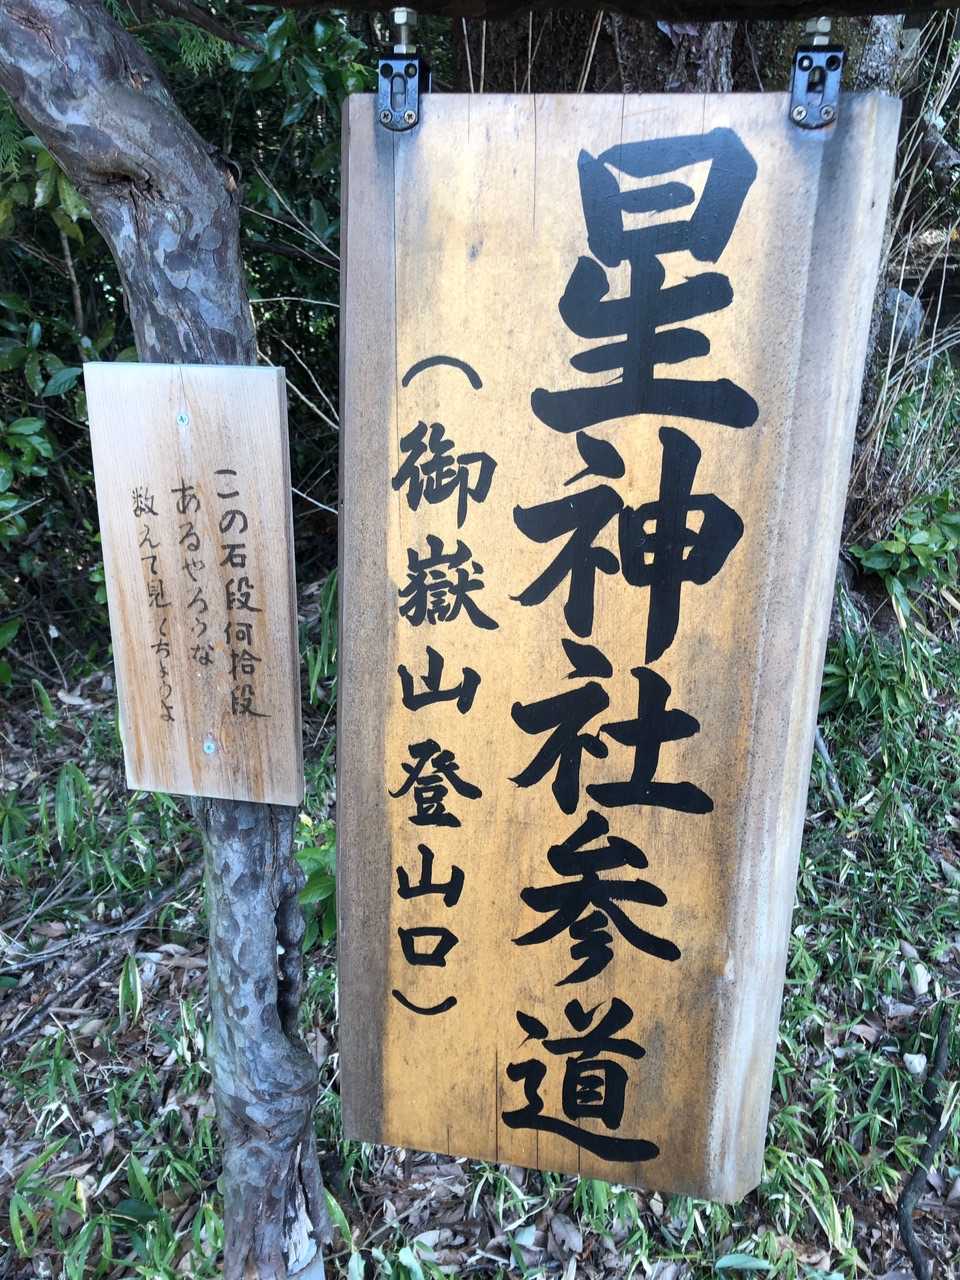 星神社参道
(御嶽山登山口)
この石段何拾段
あるやろうな
数えて見くちょうよ